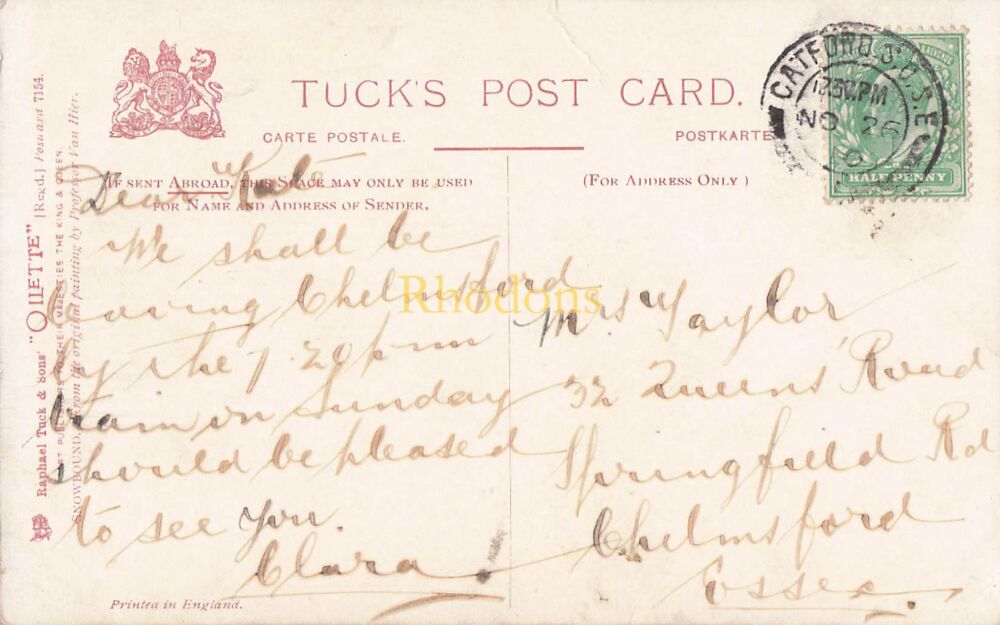 TUCK'S POST CARD.
CARTE POSTALE.
POSTKARTE
IF SENT ABROAD, THIS SPACE MAY ONLY BE USED
FOR NAME AND ADDRESS OF SENDER.
(FOR ADDRESS ONLY)
CATFORD S.O. S.E
12.50PM
NO 26
HALF PENNY
Raphael Tuck & Sons' "OILETTE" [Regd.] Postcard 7154.
ART PUBLISHERS TO THEIR MAJESTIES THE KING & QUEEN.
SNOWBOUND. From the original painting by Professor Van Hier.
Dear Kate
We shall be
leaving Chelmsford
by the 7.20 pm
train on Sunday
should be pleased
to see you.
Clara.
Mrs Taylor
32 Queens Road
Springfield Rd
Chelmsford
Essex.
Rhodons
Printed in England.